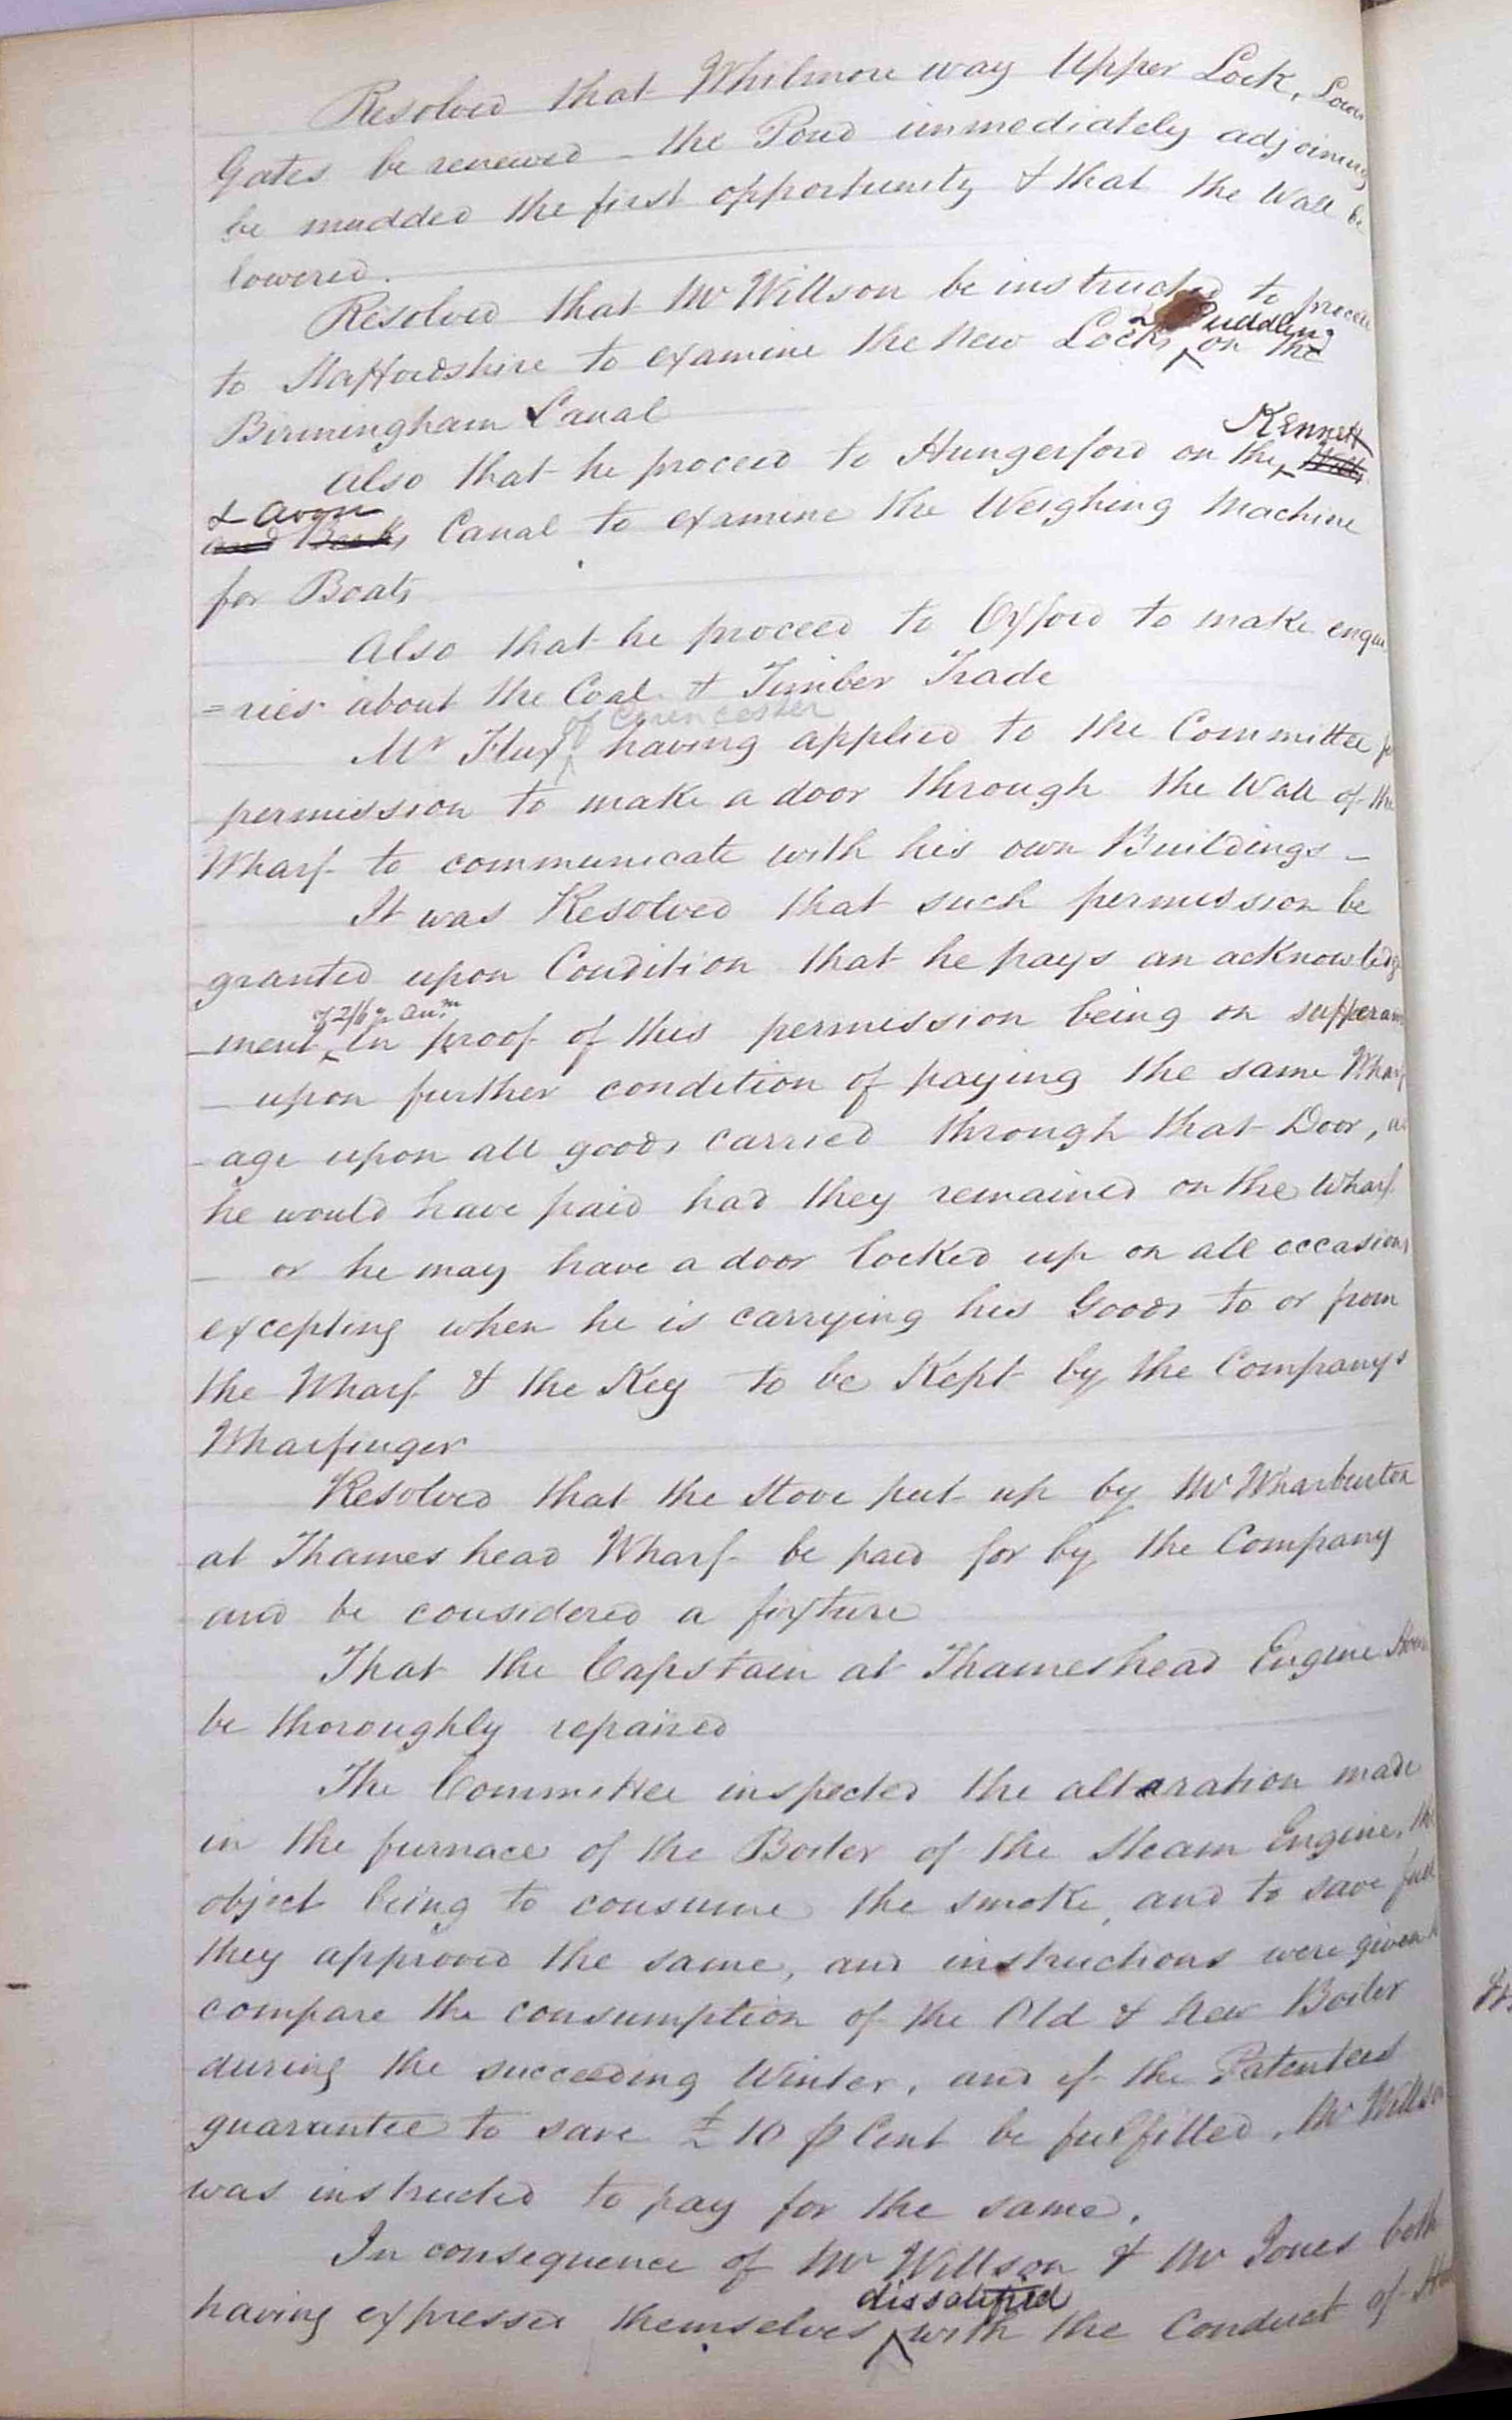 Resolved that Whilmore way Upper Lock, Lower
Gates be renewed – the Pond immediately adjoining
be mudded the first opportunity & that the Wall be
lowered.
Resolved that Mr Willson be instructed to proceed
to Staffordshire to examine the New Locks & Puddling on the
Birmingham Canal
Also that he proceed to Hungerford on the Kennett Wilts
& Avon and Berks Canal to examine the Weighing Machine
for Boats
Also that he proceed to Oxford to make enqui
=ries about the Coal & Timber Trade
Mr Flux of Cirencester having applied to the Committee for
permission to make a door through the Wall of the
Wharf to communicate with his own Buildings –
It was Resolved that such permission be
granted upon Condition that he pays an acknowledge
ment of 2/6 pr Anm in proof of this permission being on sufferance
– upon further condition of paying the same Wharf
age upon all goods carried through that Door, as
he would have paid had they remained on the Wharf
– or he may have a door locked up on all occasions
excepting when he is carrying his Goods to or from
the Wharf & the Key to be Kept by the Companys
Wharfinger
Resolved that the Stove put up by Mr Wharburton
at Thames head Wharf be paid for by the Company
and be considered a fixture
That the Capstain at Thameshead Engine House
be thoroughly repaired
The Committee inspected the altaration made
in the furnace of the Boiler of the Steam Engine, the
object being to consume the smoke, and to save fuel
they approved the same, and instructions were given to
compare the consumption of the Old & New Boiler
during the succeeding Winter, and if the Patentees
guarantee to save £10 p Cent be fulfilled, Mr Willson
was instructed to pay for the same.
In consequence of Mr Willson & Mr Jones both
having expressed themselves dissatisfied with the Conduct of